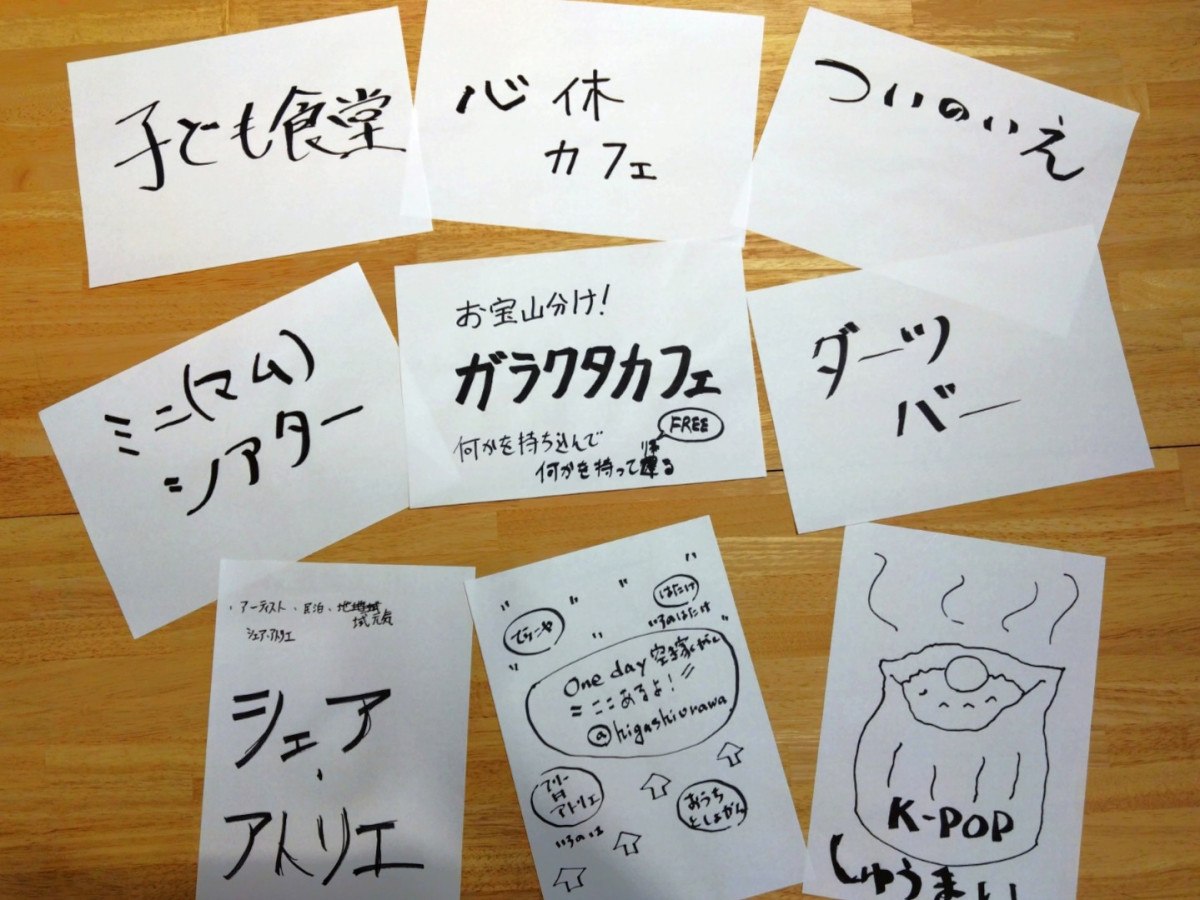 子ども食堂
心休
カフェ
ついのいえ
ミニ(マム)
シアター
お宝山分け!
ガラクタカフェ
何かを持ち込んで
FREE
何かを持って帰る
ダーツ
バー
・アーティスト・民泊・地域
域元気
シェア・アトリエ
シェア
・
アトリエ
はたけ
いろのはたけ
てらこや
One day 空き家
=ここあるよ!=
@higashiurawa
フリー
アトリエ
いろのは
おうち
としょかん
K-POP
しゅうまい